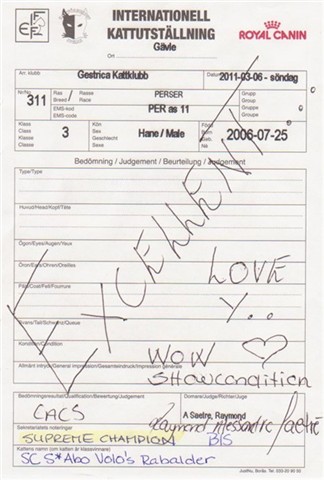 FIFe
INTERNATIONELL
KATTUTSTÄLLNING
Gävle
ROYAL CANIN
Ort
Arr. klubb Gestrica Kattklubb Datum 2011-03-06 - söndag
Nr/No 311 Ras Breed Rasse Race PERSER Grupp Group Gruppe Groupe
EMS-kod EMS-code PER as 11
Klass Class Klasse Classe 3 Kön Sex Geschlecht Sexe Hane / Male Född Born 2006-07-25
Bedömning / Judgement / Beurteilung / Jugement
EXCELLENT
Type/Type
Huvud/Head/Kopf/Tête
Ögon/Eyes/Augen/Yeux
Öron/Ears/Ohren/Oreilles
LOVE
Päls/Coat/Fell/Fourrure
Y..
Svans/Tail/Schwanz/Queue
Kondition/Condition
WOW
Allmänt intryck/General impression/Gesamteindruck/Impression générale
Showcondition
Bedömningsresultat/Qualification/Bewertung/Jugement Domare/Judge/Richter/Juge
CACS A Saetre, Raymond
SUPREME CHAMPION BIS
Kattens namn (om katten är klassvinnare)
SC S*Abo Volo's Rabalder